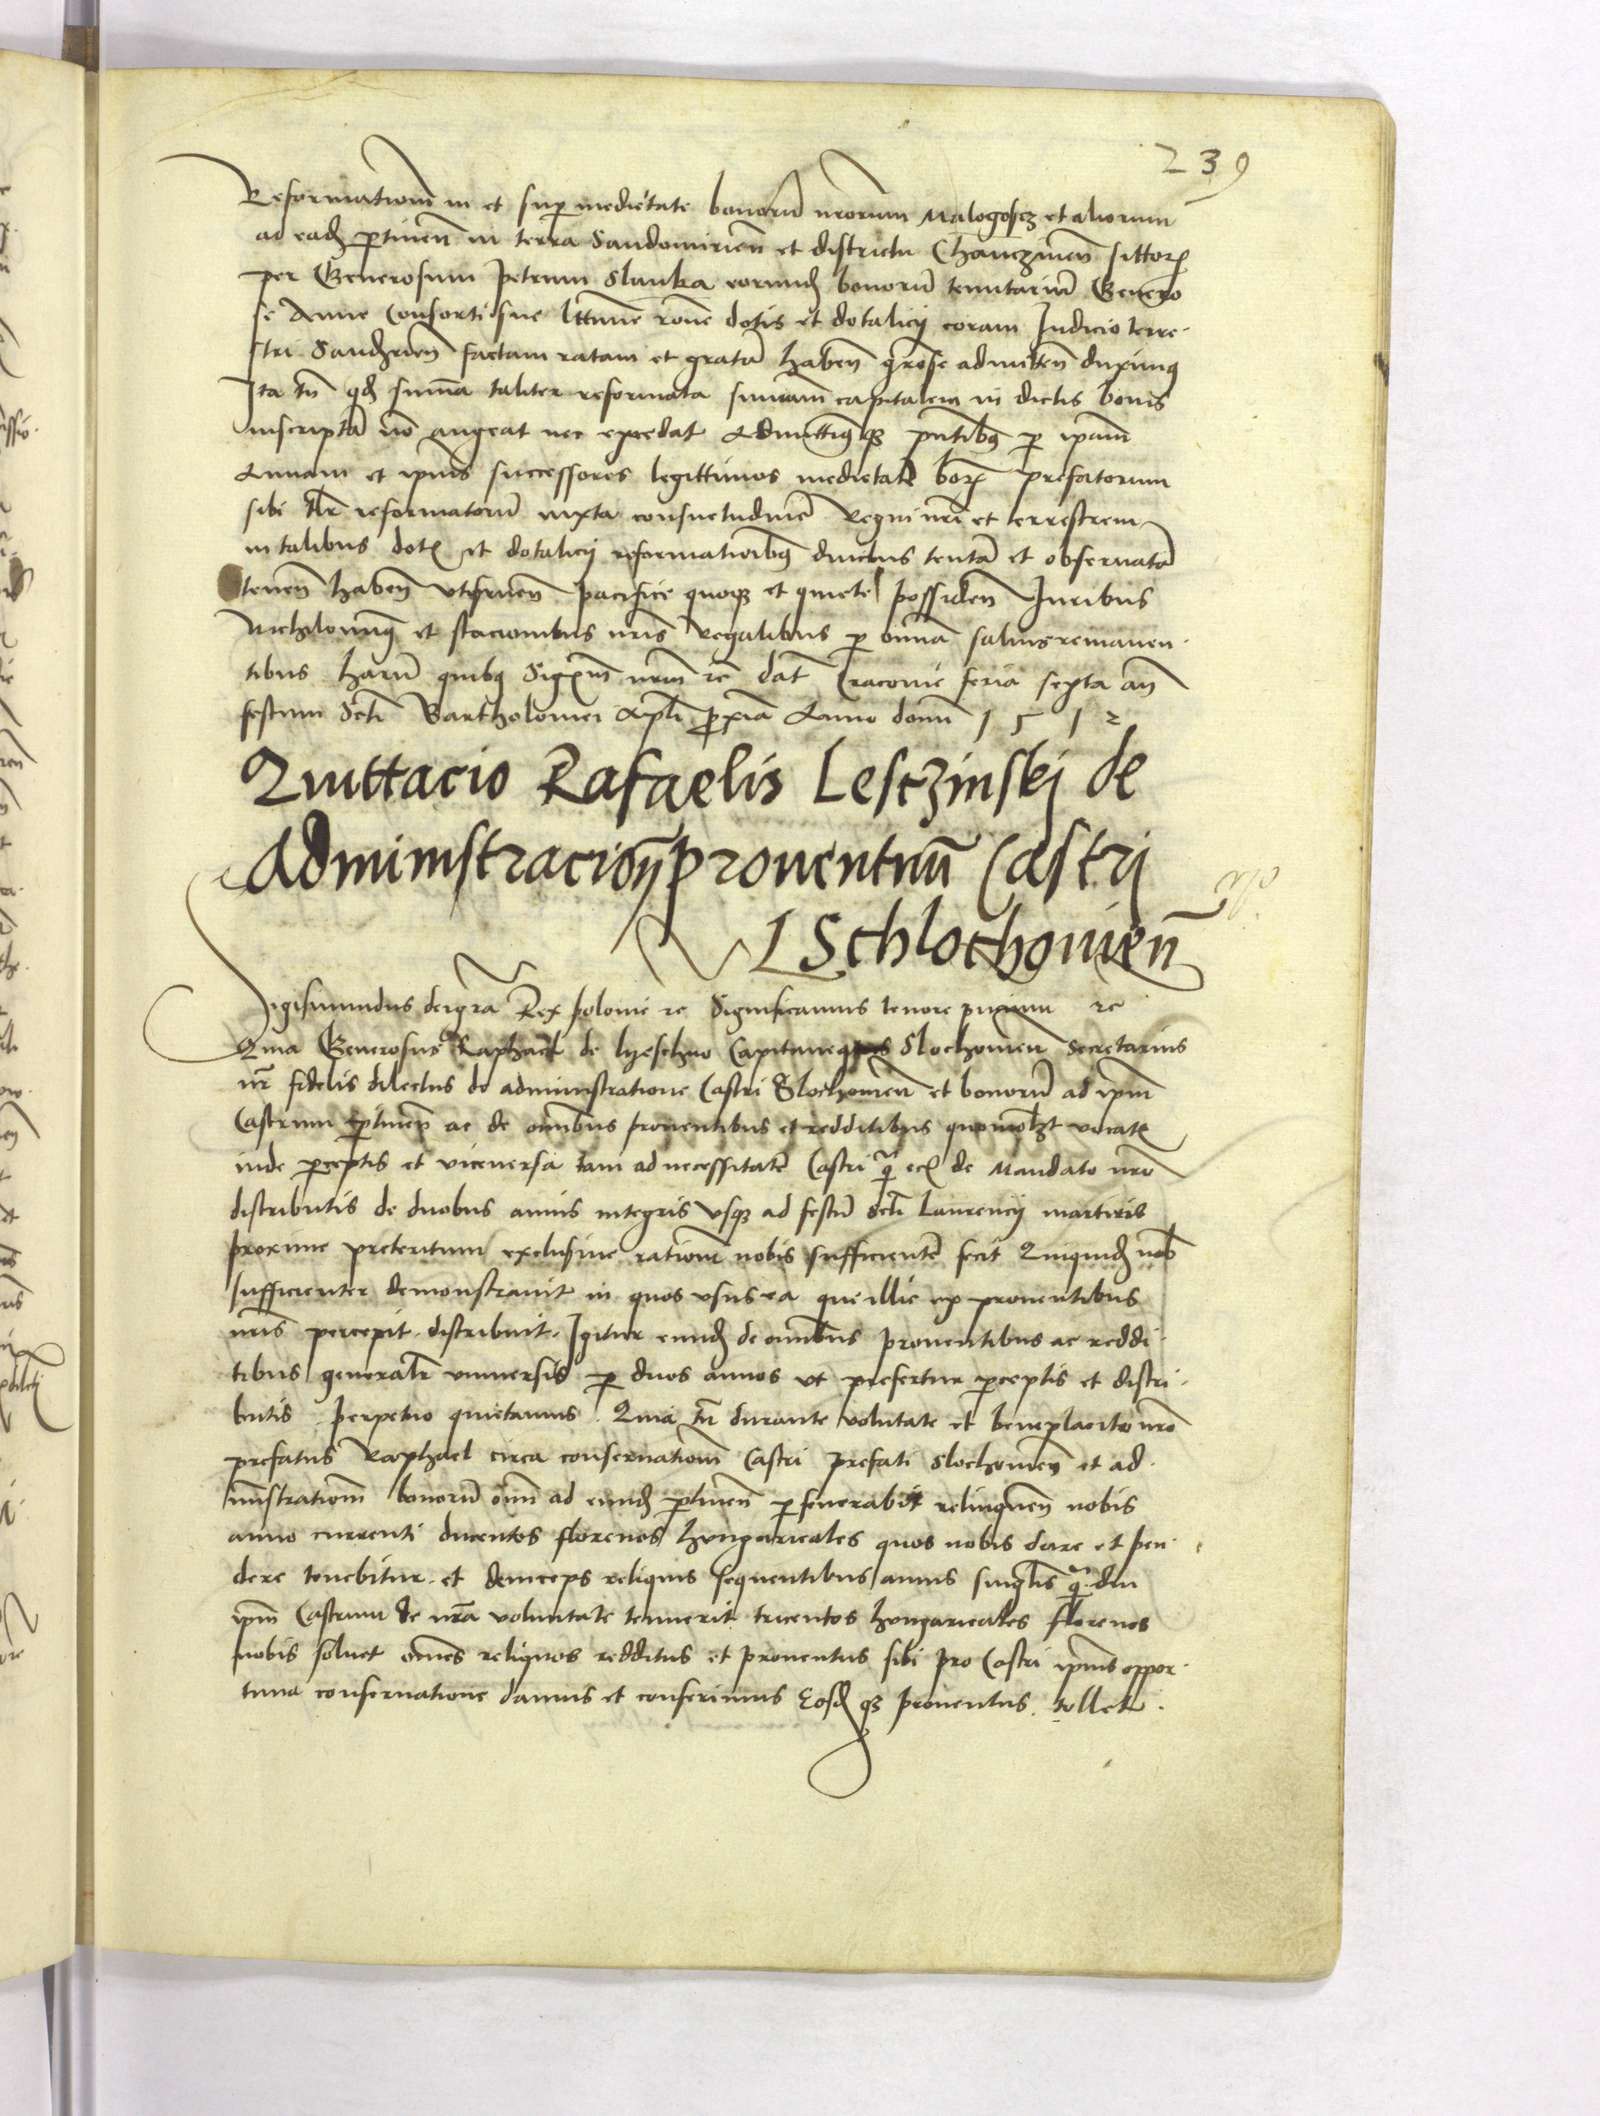 239
Reformationem in et super medietate bonorum nrorum Malogoscz et aliorum
ad eadem pertinen in terra Sandomirien et districtu Chanczinen sittorum
per Generosum Petrum Slanka eorundem bonorum tenutarium Genero
se Anne Consorti sue lttime rone dotis et dotalicij coram Judicio terre
stri Sandrien factam ratam et gratam haben grose admitten duximus
Ita tn qd summa taliter reformata summam capitalem in dictis bonis
inscriptam non augeat nec excedat Admittimusque pntibus per ipam
Annam et ipius successores legittimos medietatem borum prefatorum
sibi reformatorum iuxta consuetudinem Regni nri et terrestrem
in talibus dotis et dotalicij reformationibus diucius tentam et observatam
tenen haben utifruen pacifice quoque et quiete possiden Juribus
Nichilominus et stacionibus nris Regalibus per omnia salvis remanen
tibus harum quibus Sigillum nrm rc dat Cracovie feria sexta an
festum Scti Bartholomei Apli proxima Anno domini 1512
Quittacio Rafaelis Lesczinski de
Administracione Proventuum Castri
Schlochovien
Sigismundus dei gra Rex Polonie rc Significamus tenore pntium rc
Quia Generosus Raphael de lyeschno Capitaneus Slochovien Secretarius
nr fidelis dilectus de administratione Castri Slochovien et bonorum ad ipm
Castrum pertinen ac de omnibus proventibus et redditibus quomodolibet vocatis
inde perceptis et viceversa tam ad necessitatem Castri qm eciam de Mandato nro
distributis de duobus annis integris usque ad festum scti Laurencij martiris
proxime preteritum exclusive rationem nobis sufficientem fecit Quiquidem nobis
sufficienter demonstravit in quos usus ea que illic ex proventibus
nris percepit distribuit. Igitur eundem de omnibus proventibus ac reddi
tibus generaliter universis per duos annos ut prefertur perceptis et distri
butis perpetuo quietamus. Quia tn durante volutate et beneplacito nro
prefatus Raphael circa conservationem Castri prefati Slochovien et ad
ministrationem bonorum omnium ad eundem pertinen perseverabit relinquen nobis
anno currenti ducentos florenos hungaricales quos nobis dare et pen
dere tenebitur et deinceps reliquis sequentibus annis singulis qm diu
ipm Castrum de nra voluntate tenuerit tricentos hungaricales florenos
nobis solvet omnes reliquos redditus et proventus sibi pro Castri ipius oppor
tuna conservatione damus et conferimus Eosdem que proventus tollet